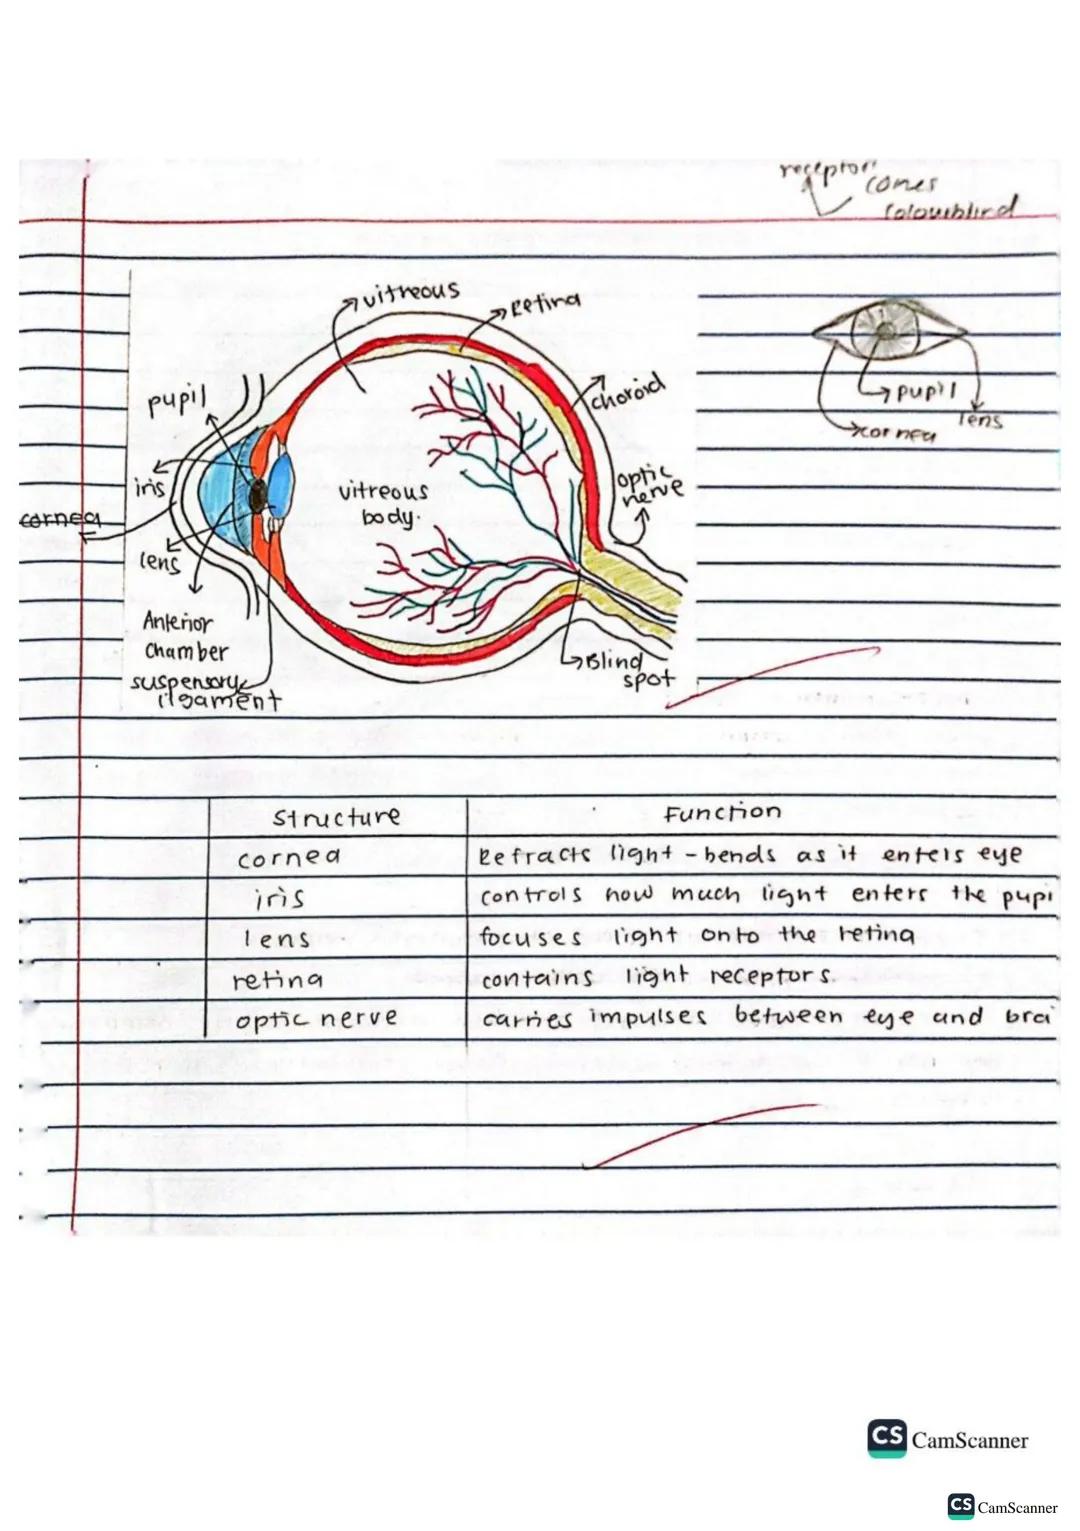 receptor
cones
Colourblind
vitreous
Retina
choroid
pupil
iris
cornea
lens
Anterior
chamber
suspensory
ligament
vitreous
body.
optic
nerve
Blind
spot
pupil
lens
cornea
Structure Function
cornea Refracts light - bends as it enters eye
iris controls how much light enters the pupi
lens focuses light onto the retina
retina contains light receptors.
optic nerve carries impulses between eye and brai
CS CamScanner
CS CamScanner